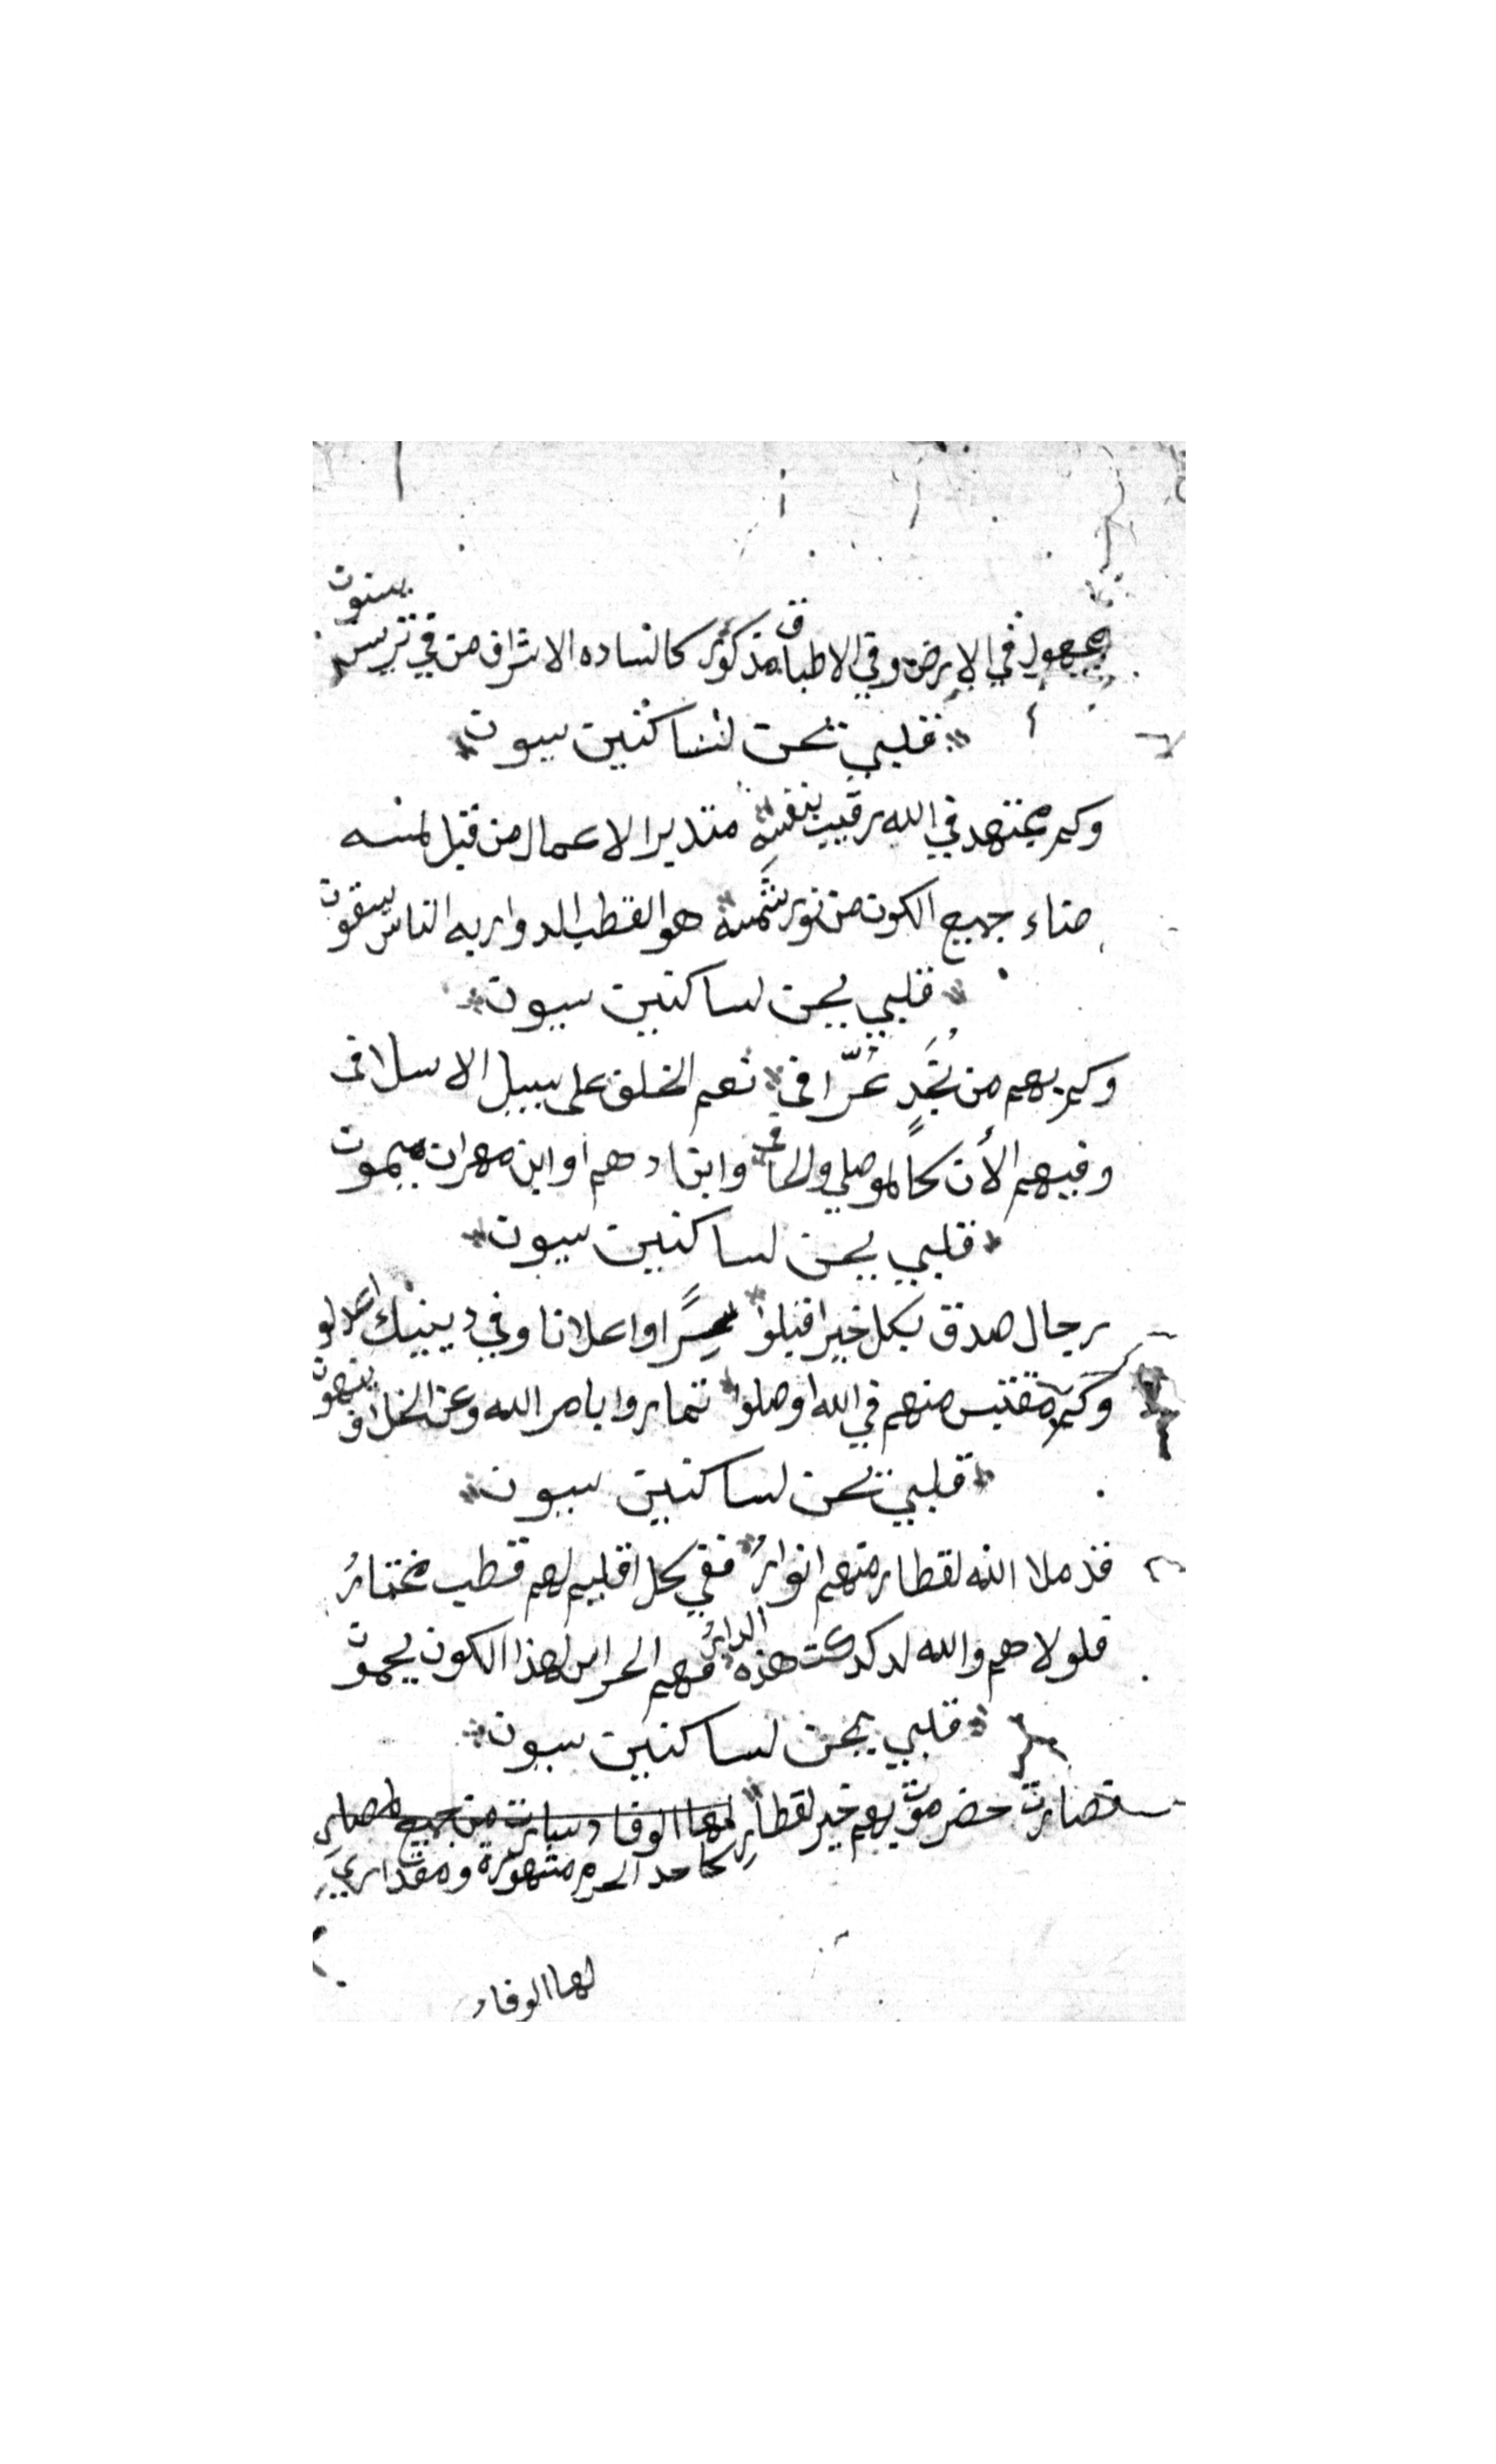 مجهول في الارض وفي الاطباق مذكور كالساده الاشراف من في تريس يبنون
قلبي يحن لساكنين سيون
وكم مجتهد في الله رقيب بنفسه متدير الاعمال من قبل لمسه
ضاء جميع الكون من نور شمسه هو القطب الدوار به الناس يسقون
قلبي يحن لساكنين سيون
وكم بهم من نجد عرافي نعم الخلق على سبيل الاسلافي
وفيهم الأن كالموصلي والحافي وابن ادهم او ابن مهران ميمون
قلبي يحن لساكنين سيون
رجال صدق بكل خير اقبلوا سرا واعلانا وفي دينك اعدلو
وكم مقتبس منهم في الله اوصلوا تماروا بامر الله وعن الخلاف ينهون
قلبي يحن لساكنين سيون
قد ملا الله لقطار منهم انوار ففي كل اقليم لهم قطب مختار
فلولاهم والله لدكدكت هذه الدار فهم الحراس لهذا الكون يحمون
قلبي يحن لساكنين سيون
فصارت حضرموت بهم خير لقطار لها الوفاد سارت من جميع لمصار
كاحد الحرم مشهورة ومقداري
لها الوفاد